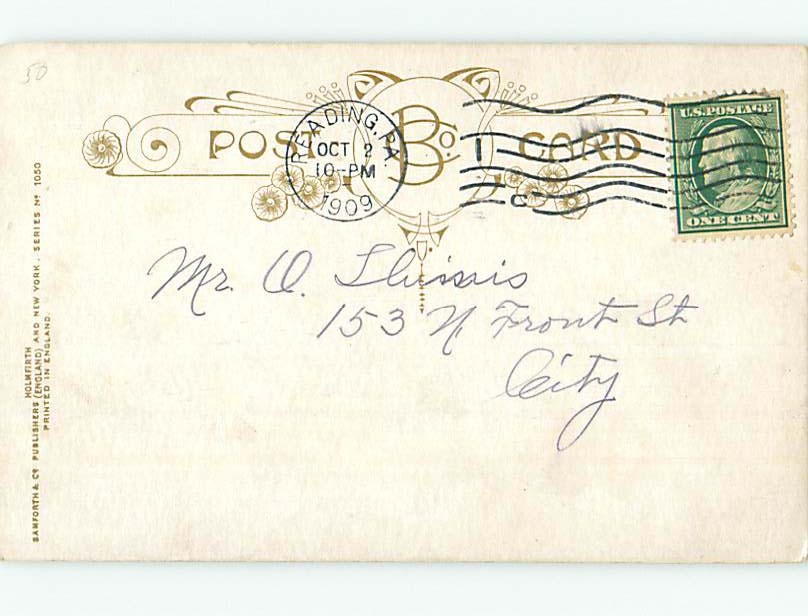 50
POST CARD
B Co.
READING, PA.
OCT 2
10-PM
1909
C
U.S. POSTAGE
ONE CENT
Mr. O.
153 N Front St
City
BAMFORTH & Co PUBLISHERS (ENGLAND) AND NEW YORK. SERIES No 1050
HOLMFIRTH
PRINTED IN ENGLAND.